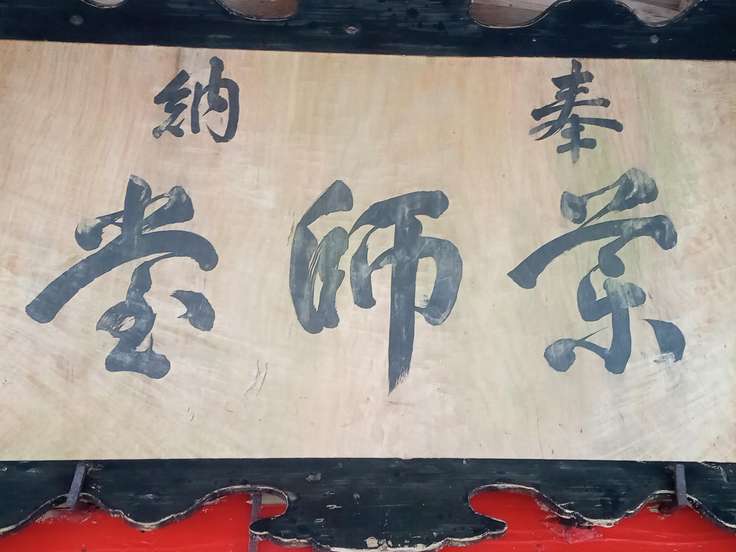 奉納
薬師堂